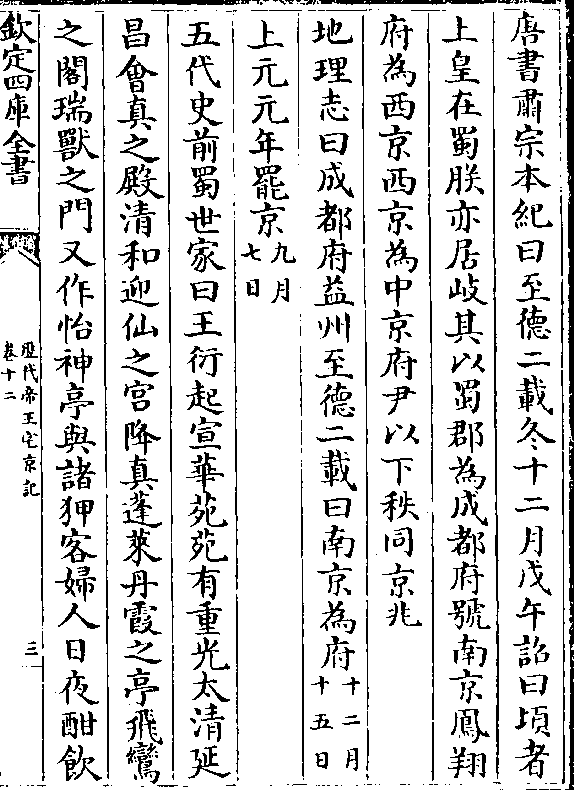 唐書肅宗本紀曰至德二載冬十二月戊午詔曰頃者
上皇在蜀朕亦居岐其以蜀郡為成都府號南京鳳翔
府為西京西京為中京府尹以下秩同京兆
地理志曰成都府益州至德二載曰南京為府十二月十五日
上元元年罷京九月七日
五代史前蜀世家曰王衍起宣華苑苑有重光太清延
昌會真之殿清和迎仙之宮降真蓬萊丹霞之亭飛鸞
之閣瑞獸之門又作怡神亭與諸狎客婦人日夜酣飲
欽定四庫全書
歷代帝王宅京記
卷十二
三